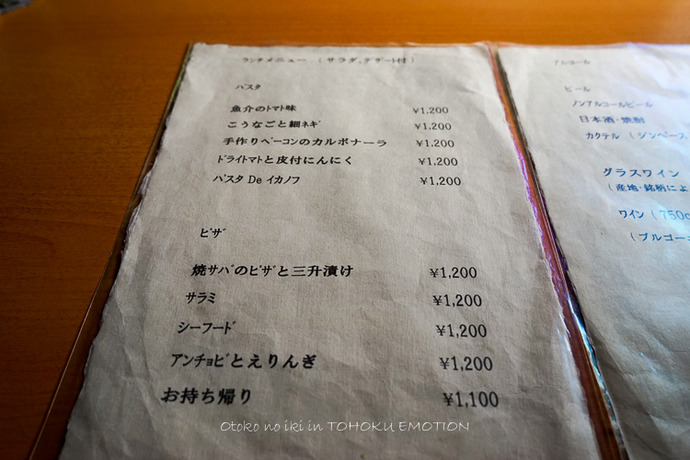 ランチメニュー (サラダ、デザート付)
パスタ
魚介のトマト味 ¥1,200
こうなごと細ネギ ¥1,200
手作りベーコンのカルボナーラ ¥1,200
ドライトマトと皮付にんにく ¥1,200
パスタ De イカノフ ¥1,200
ピザ
焼サバのピザと三升漬け ¥1,200
サラミ ¥1,200
シーフード ¥1,200
アンチョビとえりんぎ ¥1,200
お持ち帰り ¥1,100
アルコール
ビール
ノンアルコールビール
日本酒・焼酎
カクテル (ジンベース
グラスワイン
(産地・銘柄によ
ワイン (750c
(ブルゴー
Otoko no iki in TOHOKU EMOTION